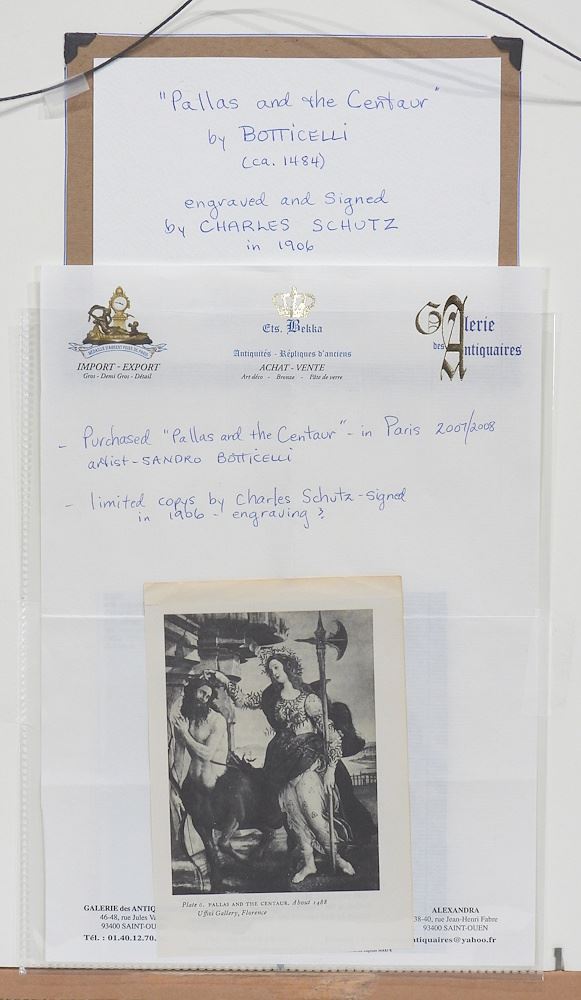 "Pallas and the Centaur"
by BOTTICELLI
(ca. 1484)
engraved and signed
by CHARLES SCHUTZ
in 1906
IMPORT - EXPORT
Gros - Demi Gros - Détail
Ets. Bekka
Antiquités - Répliques d'anciens
ACHAT - VENTE
Art déco - Bronze - Pâte de verre
Galerie
des Antiquaires
- Purchased "Pallas and the Centaur" - in Paris 2007/2008
artist - SANDRO BOTTICELLI
- limited copys by Charles Schutz - signed
in 1906 - engraving?
Plate 6. PALLAS AND THE CENTAUR. About 1488
Uffizi Gallery, Florence
GALERIE des ANTIQ
46-48, rue Jules Va
93400 SAINT-OU
Tél. : 01.40.12.70.
ALEXANDRA
38-40, rue Jean-Henri Fabre
93400 SAINT-OUEN
tiquaires@yahoo.fr